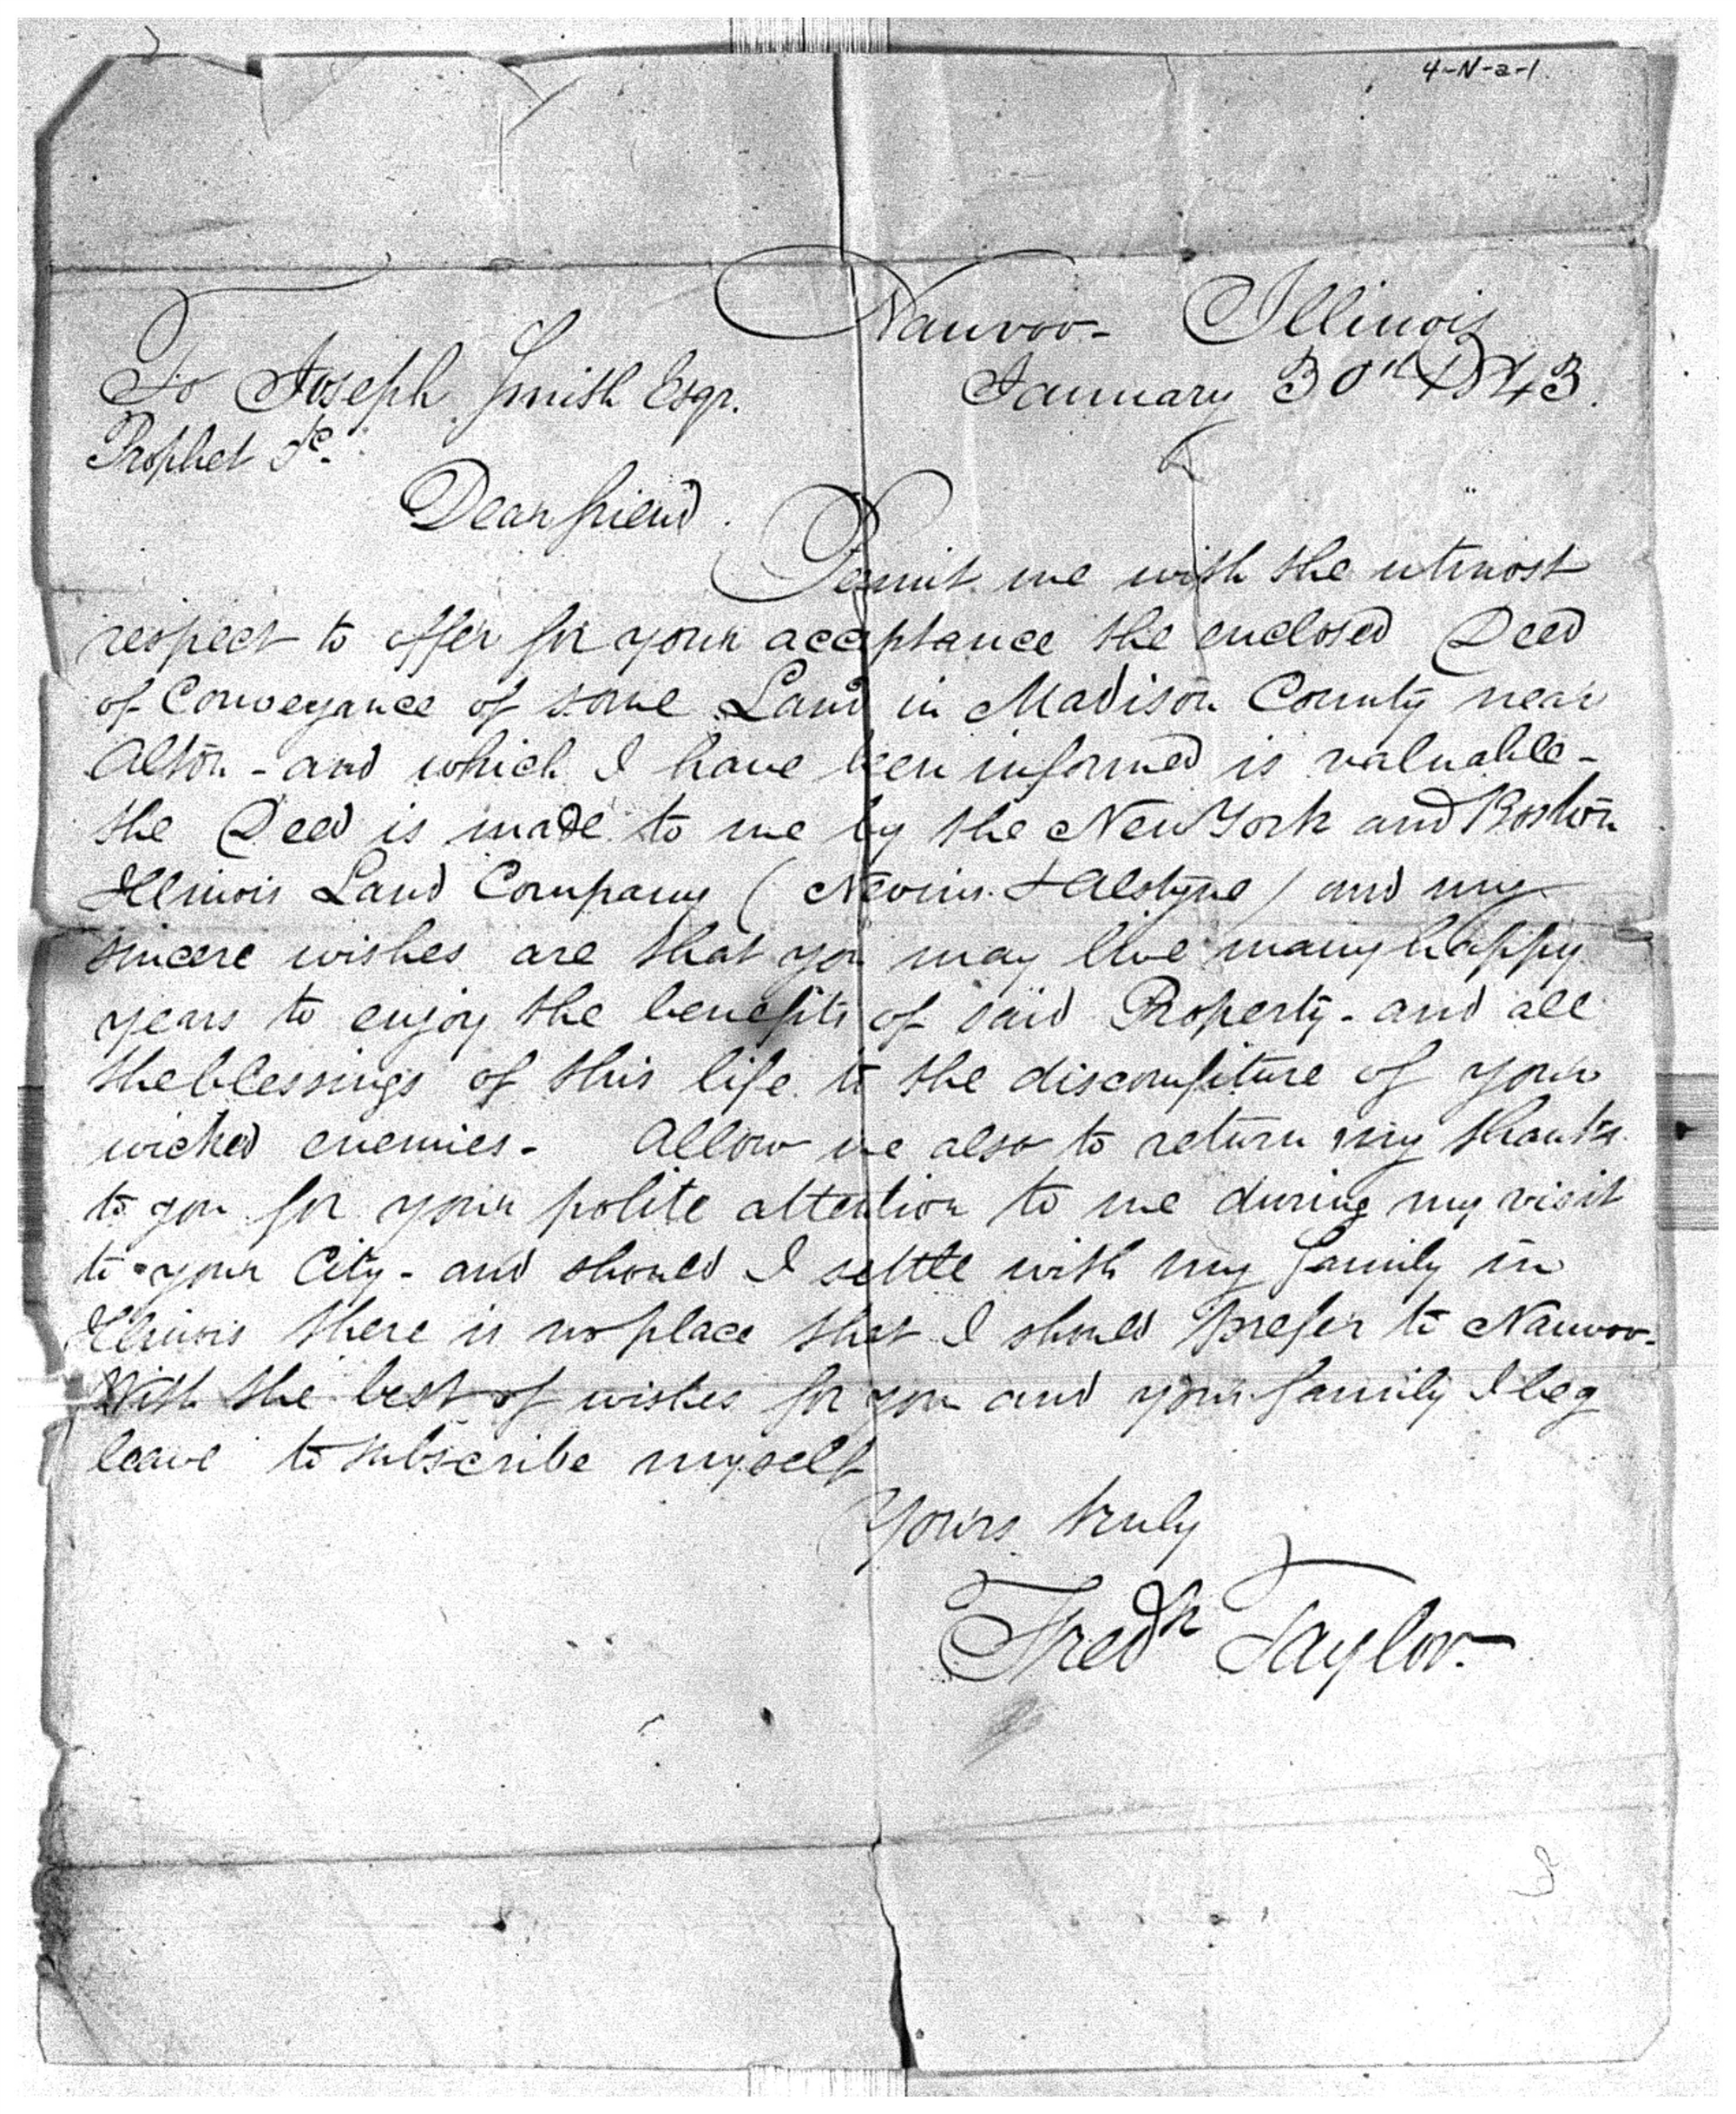 4-N-a-1.
Nauvoo- Illinois
January 30th 1843.
To Joseph Smith Esqr.
Prophet &c.
Dear friend.
Permit me with the utmost
respect to offer for your acceptance the enclosed Deed
of Conveyance of some Land in Madison County near
Alton - and which I have been informed is valuable -
the Deed is made to me by the New York and Boston
Illinois Land Company ( Nevins & Alstyne ) and my
sincere wishes are that you may live many happy
years to enjoy the benefits of said Property - and all
the blessings of this life to the discomfiture of your
wicked enemies - Allow me also to return my thanks
to you for your polite attention to me during my visit
to your City - and should I settle with my family in
Illinois there is no place that I should prefer to Nauvoo -
With the best of wishes for you and your family I beg
leave to subscribe myself
Yours truly
Fredk Taylor -